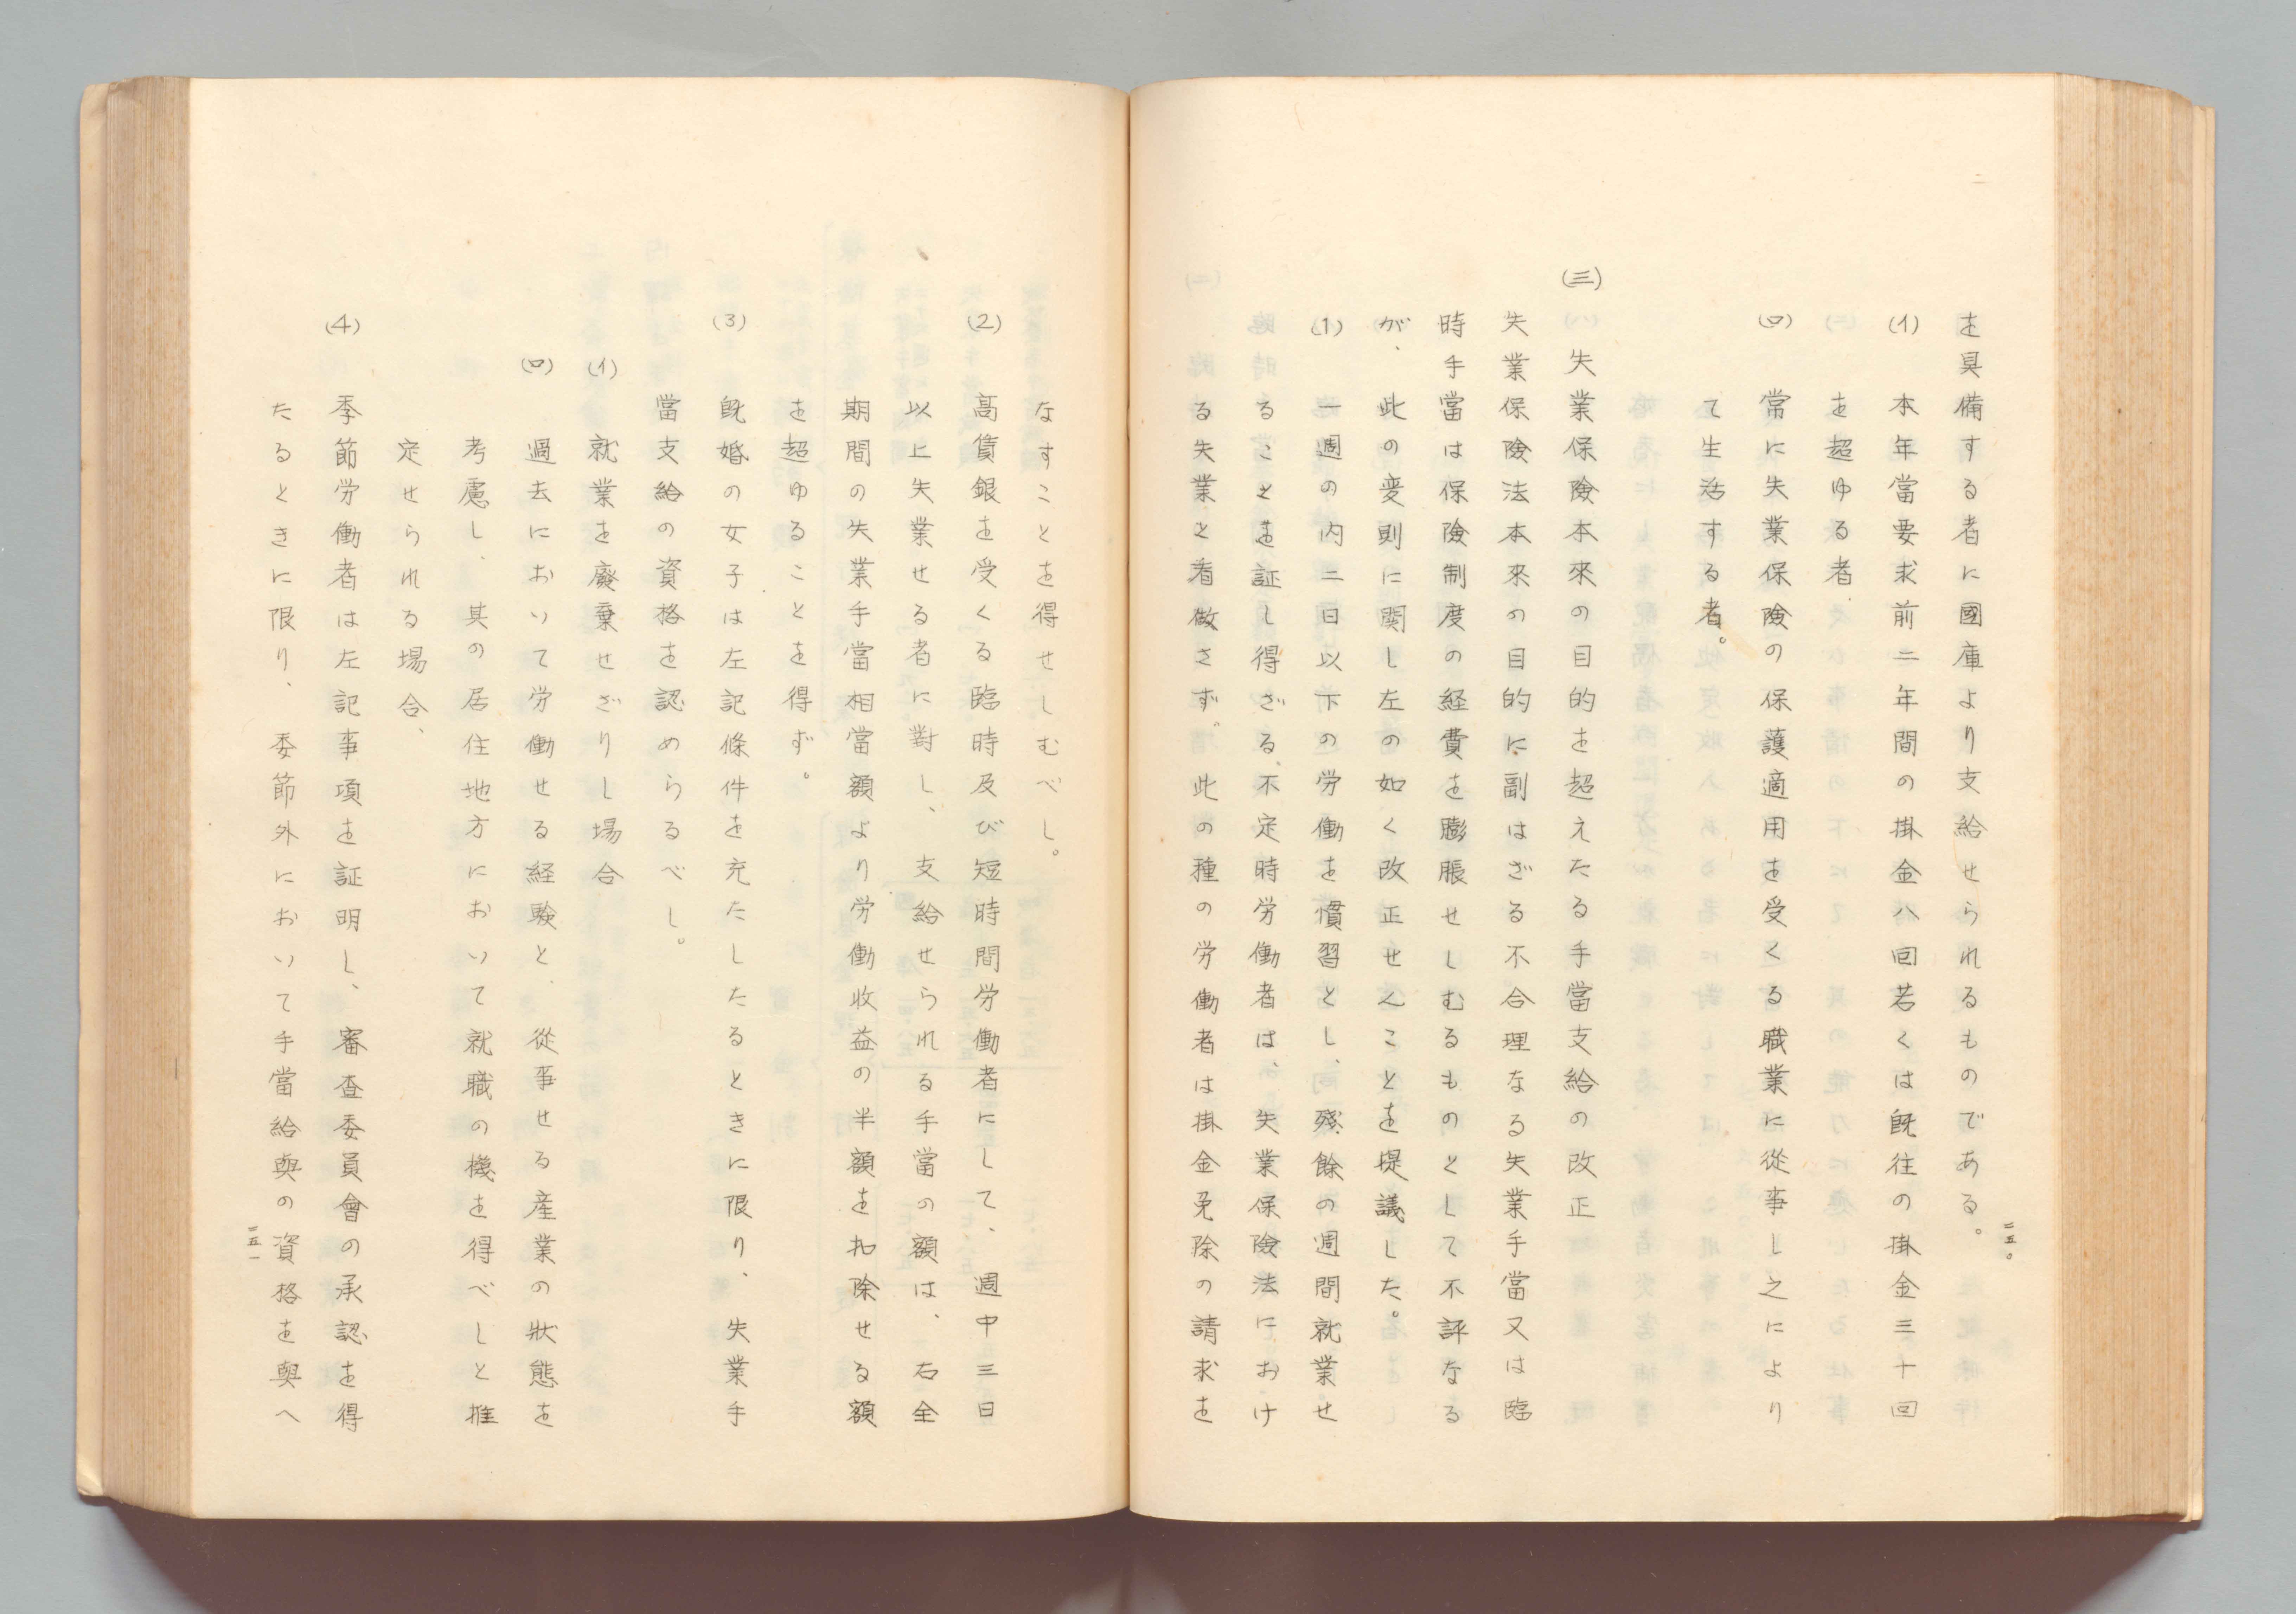 を具備する者に國庫より支給せられるものである。
(イ) 本年當要求前二年間の掛金八回若くは既往の掛金三十回
を超ゆる者、
(ロ) 常に失業保險の保護適用を受くる職業に從事し之により
て生活する者。
(三) 失業保險本來の目的を超えたる手當支給の改正
失業保險法本來の目的に副はざる不合理なる失業手當又は臨
時手當は保險制度の経費を膨脹せしむるものとして不評なる
が、此の変則に関し左の如く改正せんことを提議した。
(1) 一週の内二日以下の労働を慣習とし、残餘の週間就業せ
ることを証し得ざる、不定時労働者は、失業保險法におけ
る失業と看做さず。此の種の労働者は掛金免除の請求を
二五〇
なすことを得せしむべし。
(2) 高賃銀を受くる臨時及び短時間労働者にして、週中三日
以上失業せる者に對し、支給せられる手當の額は、右全
期間の失業手當相當額より労働收益の半額を扣除せる額
を超ゆることを得ず。
(3) 既婚の女子は左記條件を充たしたるときに限り、失業手
當支給の資格を認めらるべし。
(イ) 就業を廢棄せざりし場合
(ロ) 過去において労働せる経験と、從事せる産業の狀態を
考慮し、其の居住地方において就職の機を得べしと推
定せられる場合、
(4) 季節労働者は左記事項を証明し、審査委員會の承認を得
たるときに限り、委節外において手當給與の資格を與へ
二五一